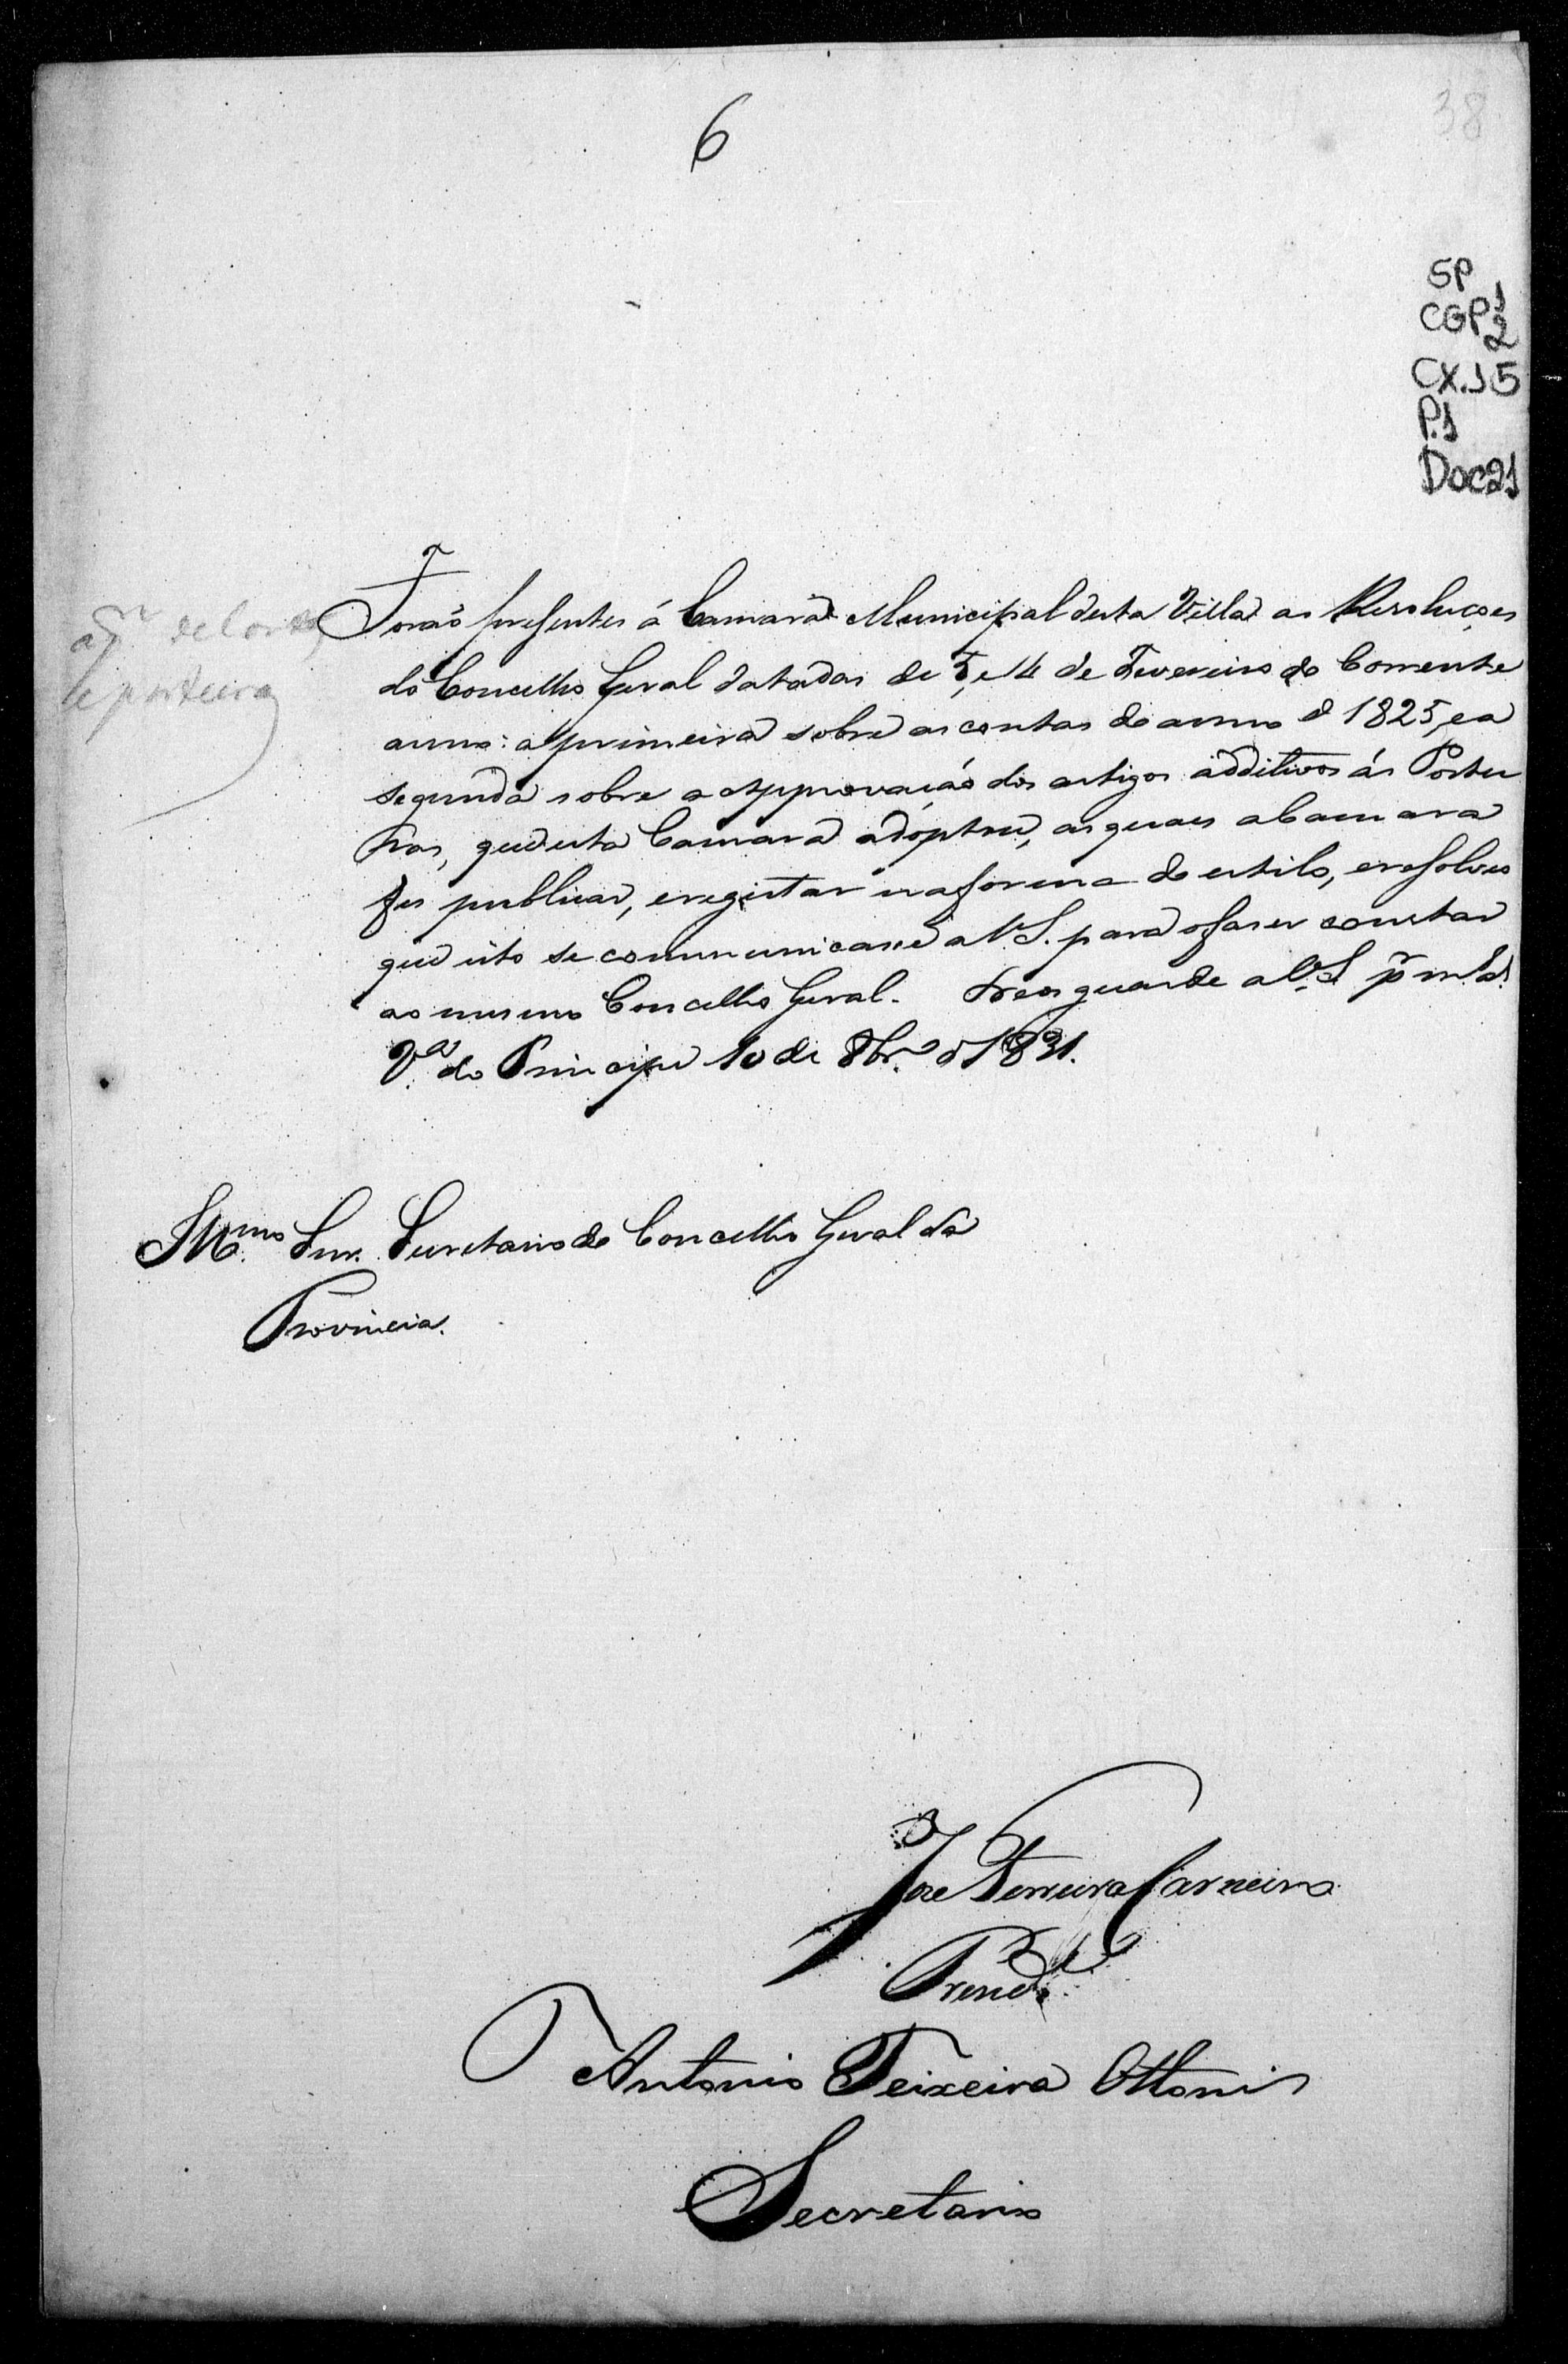 6
38
SP
CGP 1
2
CX.15
P.1
Doc21
Foraõ presentes á Camara Municipal desta Villa as Resoluçoes
do Concelho Geral datadas de 5, e 14 de Fevereiro do Corrente
anno: a primeira sobre as contas do anno d 1825, e a
segunda sobre a Approvaçaõ dos artigos additivos ás Postu
ras, que esta Camara adoptou, as quaes a Camara
fes publicar, e registar na forma do estilo, e resolveo
que isto se communicasse a V.S. para o faser constar
ao mesmo Concelho Geral. Deos guarde a V.S. pr ms as.
Va. do Principe 10 de 8bro. d 1831.
Illmo. Snr. Secretario do Concelho Geral da
Provincia.
Jose Ferreira Carneiro
Presidte.
Antonio Teixeira Ottoni
Secretario